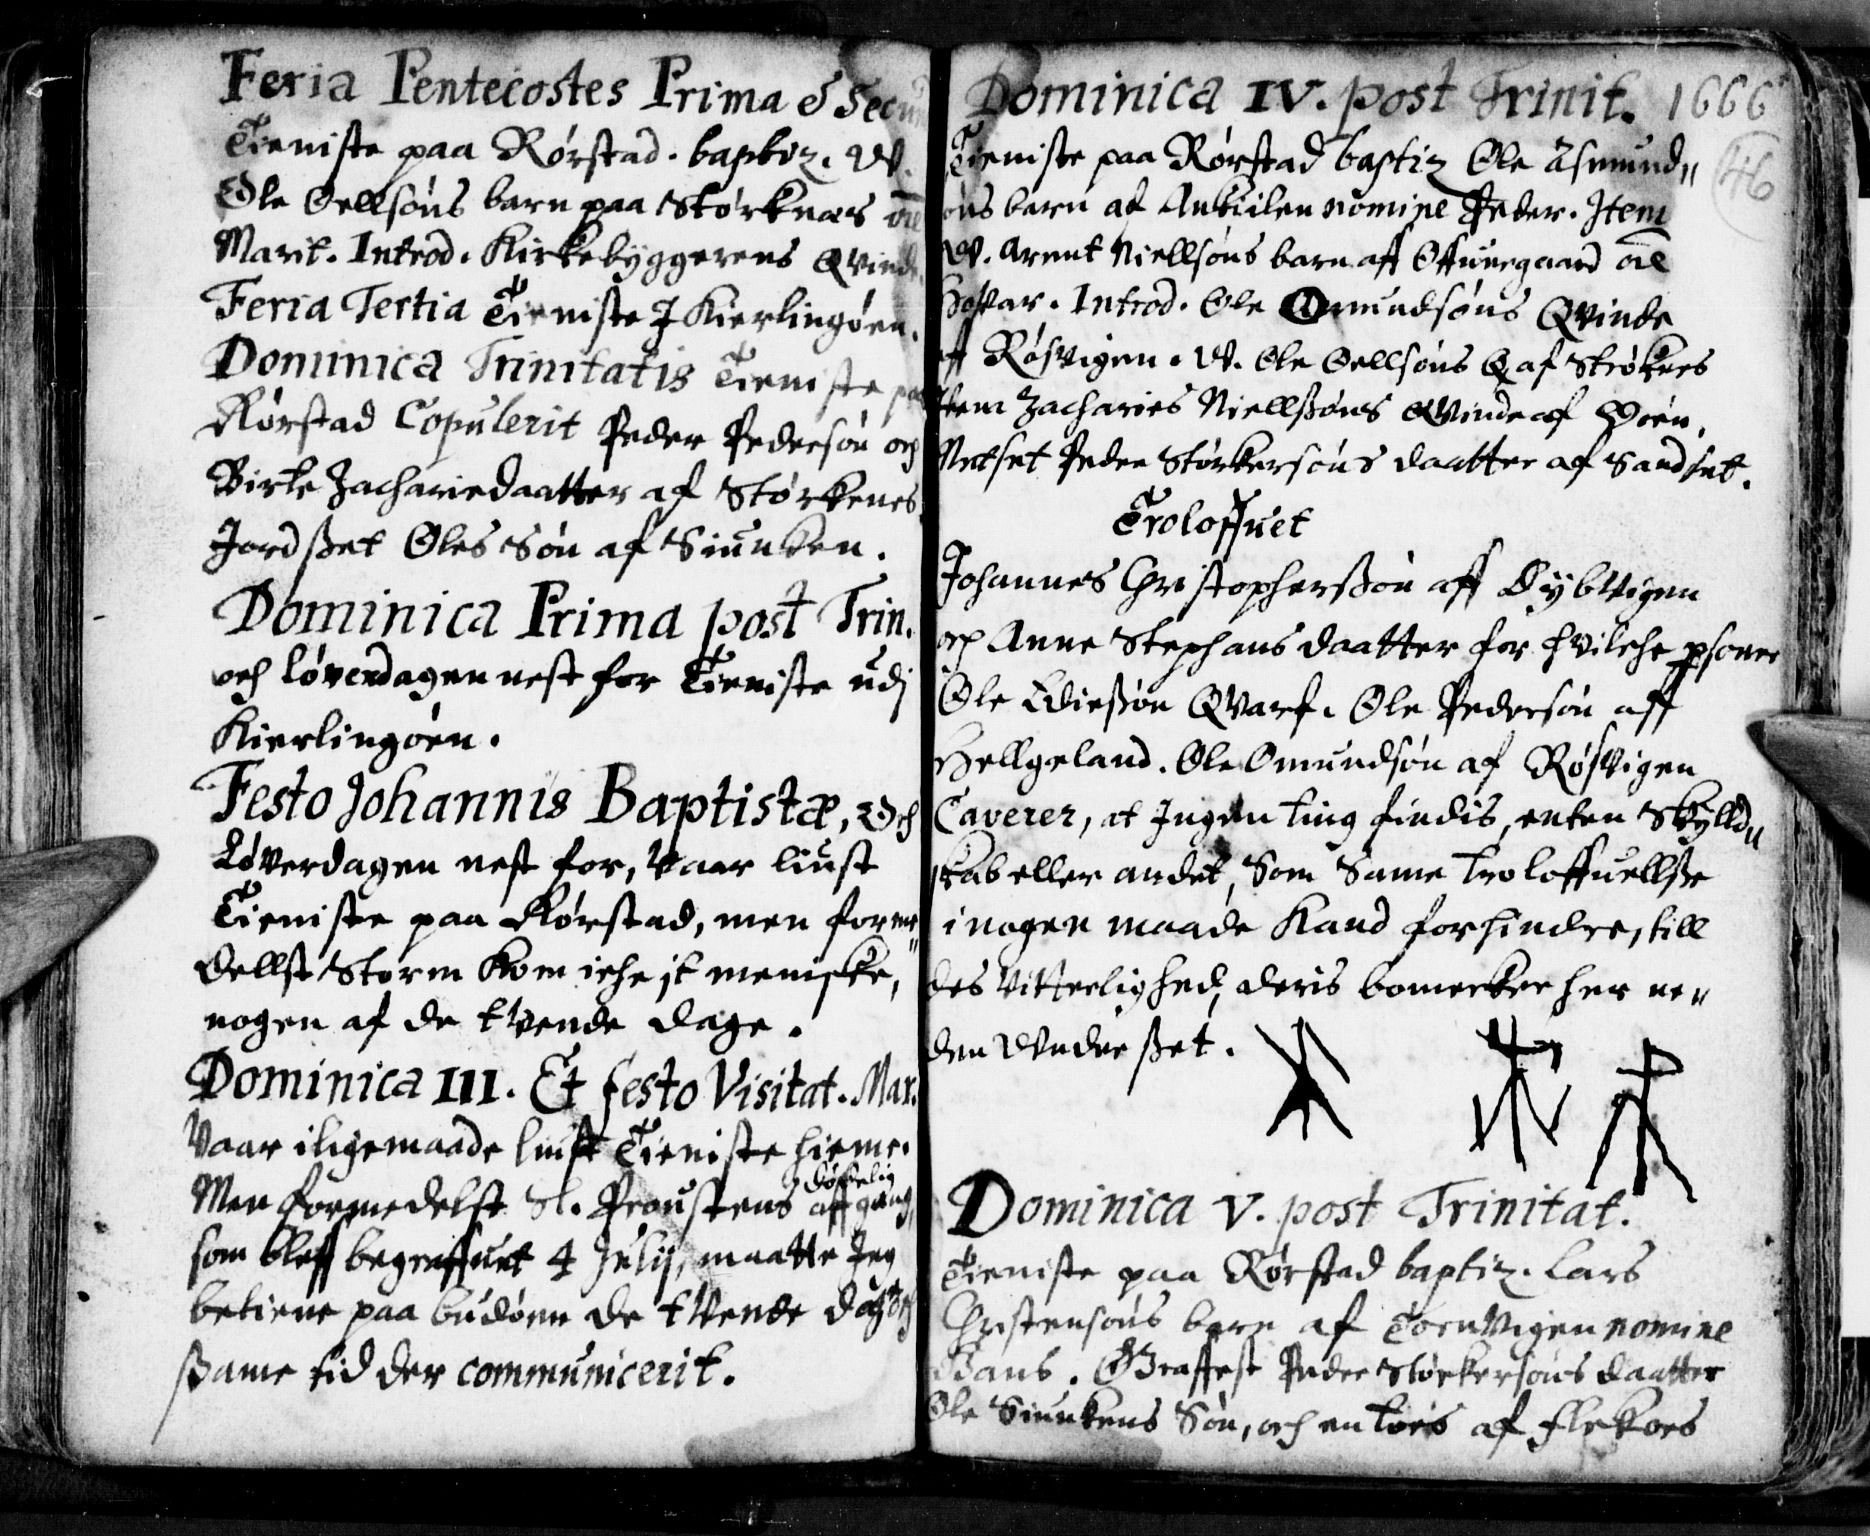 Feria Pentecostes Prima & Secun
Tieniste paa Rørstad. baptiz. W.
Ole Oellsøns barn paa Størknes
Marit. Introd. Kirkebyggerens Qvinde
Feria Tertia Tieniste J Kierlingøen.
Dominica Trinitatis Tieniste paa
Rørstad Copulerit Peder Pedersøn och
Birte Zachariedaatter af Størkenes
Jordsset Oles Søn af Siunken.
Dominica Prima post Trin.
och løverdagen nest for Tieniste udj
Kierlingøen.
Festo Johannis Baptistæ, Och
Løverdagen nest for, Vaar liust
Tieniste paa Rørstad, men forme"
dellst Storm Kom iche it meniske,
nogen af de tvende dage.
Dominica III. Et festo Visitat. Mar.
Vaar iligemaade liust Tieniste hieme.
Men formedelst Sl. Proustens dødelig affgang,
som bleff begraffuet 4 Julij, maatte Jeg
betiene paa budøen de tvende dage och
ssame tid der communicerit.
Dominica IV. post Trinit. 1666
46
Tieniste paa Rørstad baptiz Ole Asmund"
søns barn af nomine Peder. Item
W. Arent Niellsøns barn aff
Introd. Ole Omundsøns Qvinde
aff Røsvigen. W. Ole Oellsøns Q af Strøknes
Item Zacharies Niellssøns Qvinde af
Peder Størkersøns daatter af Sandset.
Troloffuet
Johannes Christopherssøn aff Dybvigen
och Anne Stephansdaatter for hvilche psoner
Ole Qvarf. Ole Pedersøn aff
Hellgeland. Ole Omundsøn af Røsvigen
Caverer, at Ingen ting findis, enten Skylld"
skab eller andet, Som Same troloffuellsse
i nogen maade Kand forhindre, till
des Vitterlighed, deris bomerker her ne"
den Undersset.
Dominica V. post Trinitat.
Tieniste paa Rørstad baptiz. Lars
Christensøns barn af Tornvigen nomine
Hans. Graffest Peder Størkersøns daatter
Ole Siunkens Søn, och en af